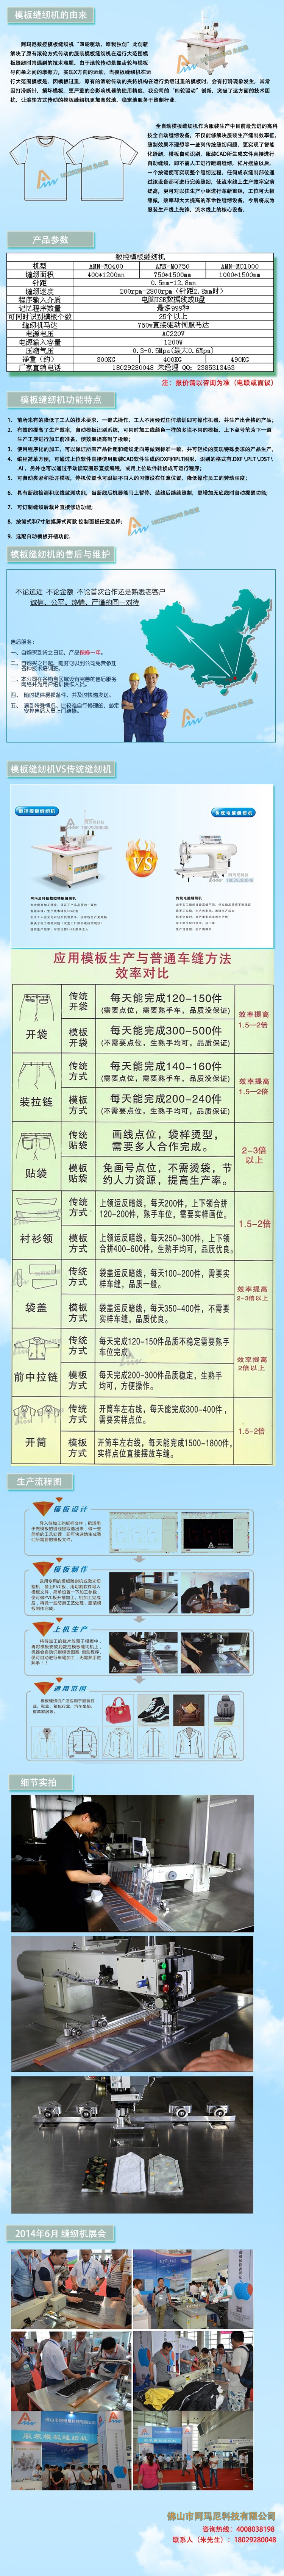 模板缝纫机的由来
阿玛尼数控模板缝纫机“四轮驱动，唯我独创”此创新
解决了原有滚轮方式传动的服装模板缝纫机在运行大范围模
板缝纫时常遇到的技术难题。由于滚轮传动是靠齿轮与模板
导向条之间的摩擦力，实现X方向的运动。当模板缝纫机在运
行大范围模板是，因模板过重，原有的滚轮传动的夹持机构在运行负载过重的模板时，会有打滑现象发生，常常
因打滑断针，损坏模板，更严重的会影响机器的使用精度。我公司的“四轮驱动”创新，突破了这方面的技术困
扰，让滚轮方式传动的模板缝纫机更加高效地、稳定地服务于缝制行业。
全自动模板缝纫机作为服装生产中目前最先进的高科
技全自动缝纫设备，不仅能够解决服装生产缝制效率低，
缝制效果不理想等一些列传统缝纫问题，更实现了智能
化缝纫，模板自动识别，服装CAD所生成文件直接进行
自动缝纫，却不需人工进行硬缝缝纫，样片裁盖以后，
一个按键便可实现整个缝纫过程，任何成衣缝制部位通
过该设备都可进行完美缝纫，使流水线上生产效率空前
提高，更可对以往生产小组进行革新重组，工位可大幅
缩减，效率却大大提高的革命性缝纫设备，今后将成为
服装生产线上先锋，流水线上的核心设备。
产品参数
数控模板缝纫机
机型 AMN-MO400 AMN-MO750 AMN-MO1000
缝纫面积 400*1200mm 750*1500mm 1000*1500mm
针距 0.5mm-12.8mm
缝纫速度 200rpm-2800rpm（针距2.8mm时）
程序输入介质 电脑USB数据线或U盘
记忆程序数量 最多999种
可同时识别模板个数 25个以上
缝纫机马达 750w直接驱动伺服马达
电源电压 AC220V
电源输入容量 1200W
压缩气压 0.3-0.5Mpa(最大0.6Mpa)
净重（约） 300KG 400KG 490KG
厂家直销电话 18029280048 朱经理 QQ：2385313463
注：报价请以咨询为准（电联或面议）
模板缝纫机功能特点
1、前所未有的降低了工人的技术要求，一键式操作，工人不用经过任何培训即可操作机器，并生产出合格的产品；
2、有效的提高了生产效率，自动模板识别系统，可同时加工线颜色一样的多块不同的模板，上下点号笔为下一道
生产工序进行加工前准备，使效率提高到了极致；
3、使用程序化的加工，可以保证所有产品针距和缝纫走向等做到标准一致，并可轻松的实现特殊要求的产品生产。
4、编程简单方便，可通过上位软件直接使用服装CAD软件生成的DXF和PLT图形，识别的格式有 DXF \PLT \DST \
.AI 。另外也可以通过手动读取图形直接编程，或用上位软件转换成可运行程序；
5、可自动夹紧和松开模板，停机位置也可跟据不同人的习惯设在任意位置，降低操作员工的劳动强度；
6、具有断线检测和底线监测功能，当断线后机器能马上暂停，装线后继续缝制，更增加无底线时自动提醒功能；
7、可订制缝纫后裁片直接修边功能；
8、按键式和7寸触摸屏式两款 控制面板任意选择；
9、选配自动模板开槽功能.
模板缝纫机的售后与维护
不论远近 不论金额 不论首次合作还是熟悉老客户
诚信、公平、热情、严谨的同一对待
售后服务：
一、自购买到货之日起，产品保修一年。
二、自购买之日起，随时可以到公司免费参加
各种技术培训班。
三、本公司在各销售区域设有完善的售后服务
网络并为用户培训操作人员。
四、随时提供易损备件，并及时快速发送。
五、遇到特殊情况，比较难自行修理的，必派
安排售后人员上门维修。
模板缝纫机VS传统缝纫机
数控模板缝纫机
传统电脑模板机
VS
应用模板生产与普通车缝方法
效率对比
开袋
传统开袋 每天能完成120-150件
(需要点位，需要熟手车，品质没保证)
模板开袋 每天能完成300-500件
(不需要点位，生熟手均可，品质保证)
效率提高
1.5—2倍
装拉链
传统方式 每天能完成140-160件
(需要点位，需要熟手车，品质没保证)
模板方式 每天能完成200-240件
(不需要点位，生熟手均可，品质保证)
效率提高
1.5—2倍
贴袋
传统贴袋 画线点位，袋样烫型，
需要多人合作完成。
模板贴袋 免画号点位，不需烫袋，节
约人力资源，提高生产率。
2-3倍
以上
衬衫领
传统方式 上领运反暗线，每天200件，上下领合拼
120-200件，熟手车位，需要实样画位。
模板方式 上领运反暗线，每天250-300件，上下领
合拼400-600件，生熟手均可，品质优良。
1.5-2倍
袋盖
传统方式 袋盖运反暗线，每天100-200件，需要实
样车缝，品质一般。
模板方式 袋盖运反暗线，每天350-400件，不需要
实样车缝，品质优良。
效率提高
2-3倍以上
前中拉链
传统方式 每天完成120-150件品质不稳定需要熟手
车位完成。
模板方式 每天完成200-300件品质稳定，生熟手
均可，方便操作。
效率提高
2倍以上
开筒
传统方式 开筒车左右线，每天能完成300-400件，
需要实样点位。
模板方式 开筒车左右线，每天能完成1500-1800件，
实样点位直接摆放车缝。
1.5-2倍
生产流程图
模板设计
模板制作
上机生产
适用范围
细节实拍
2014年6月 缝纫机展会
佛山市阿玛尼科技有限公司
咨询热线：4008038198
联系人（朱先生）：18029280048